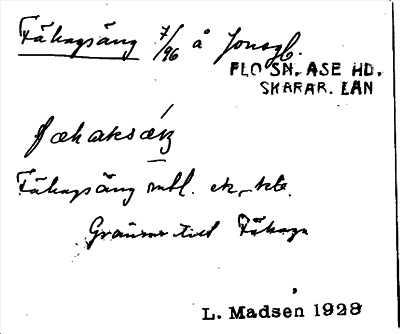 Fåkagsäng 7/96 å Jonsgb.
FLO SN. ASE HD.
SKARAR. LÄN
fåkaksäŋ
Fåkagsäng mtl. ek. kb.
Gränsar till Fåkaga
L. Madsen 1928